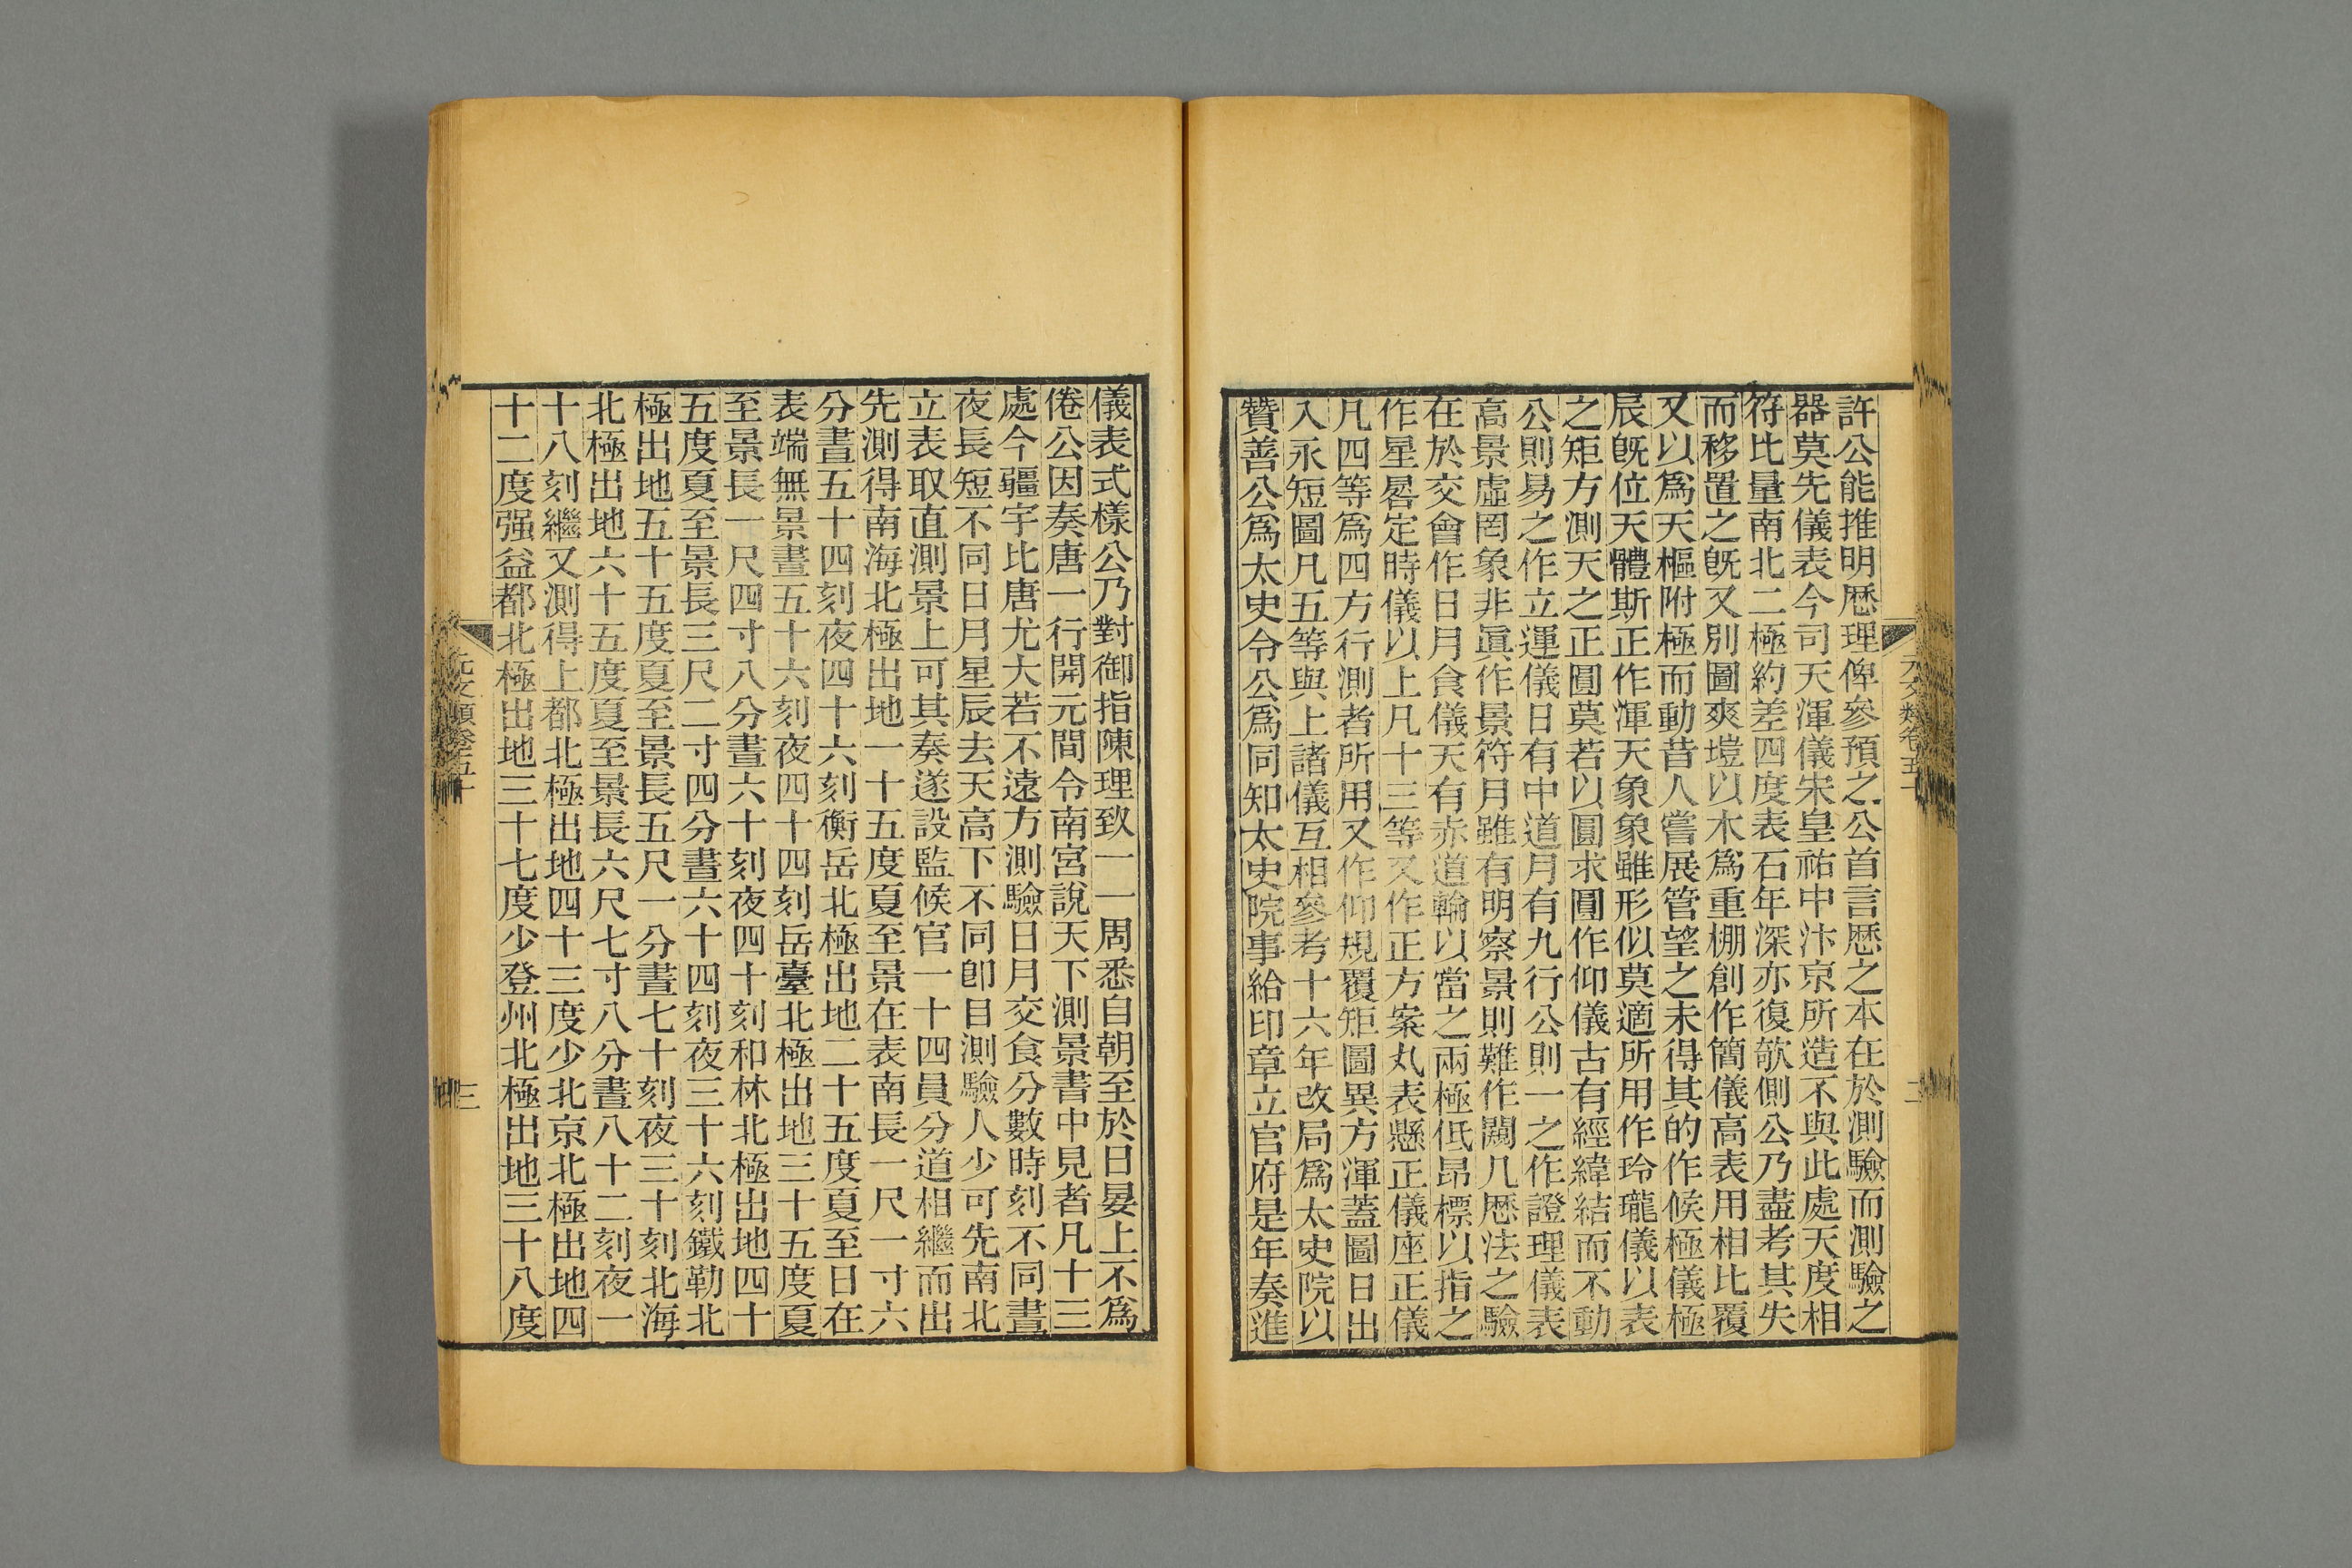 許公能推明厯理俾參預之公首言厯之本在於測驗而測驗之
器莫先儀表今司天渾儀宋皇祐中汴京所造不與此處天度相
符比量南北二極約差四度表石年深亦復欹側公乃盡考其失
而移置之旣又別圖爽塏以木爲重棚創作簡儀高表用相比覆
又以爲天樞附極而動昔人嘗展管望之未得其的作候極儀極
辰旣位天體斯正作渾天象象雖形似莫適所用作玲瓏儀以表
之矩方測天之正圓莫若以圓求圓作仰儀古有經緯結而不動
公則易之作立運儀日有中道月有九行公則一之作證理儀表
高景虛罔象非眞作景符月雖有明察景則難作闚几厯法之驗
在於交會作日月食儀天有赤道輪以當之兩極低昂標以指之
作星晷定時儀以上凡十三等又作正方案丸表懸正儀座正儀
凡四等爲四方行測者所用又作仰規覆矩圖異方渾蓋圖日出
入永短圖凡五等與上諸儀互相參考十六年改局爲太史院以
贊善公爲太史令公爲同知太史院事給印章立官府是年奏進
元文類卷五十
二
儀表式樣公乃對御指陳理致一一周悉自朝至於日晏上不爲
倦公因奏唐一行開元間令南宮說天下測景書中見者凡十三
處今疆宇比唐尤大若不遠方測驗日月交食分數時刻不同晝
夜長短不同日月星辰去天高下不同卽目測驗人少可先南北
立表取直測景上可其奏遂設監候官一十四員分道相繼而出
先測得南海北極出地一十五度夏至景在表南長一尺一寸六
分晝五十四刻夜四十六刻衡岳北極出地二十五度夏至日在
表端無景晝五十六刻夜四十四刻岳臺北極出地三十五度夏
至景長一尺四寸八分晝六十刻夜四十刻和林北極出地四十
五度夏至景長三尺二寸四分晝六十四刻夜三十六刻鐵勒北
極出地五十五度夏至景長五尺一分晝七十刻夜三十刻北海
北極出地六十五度夏至景長六尺七寸八分晝八十二刻夜一
十八刻繼又測得上都北極出地四十三度少北京北極出地四
十二度强益都北極出地三十七度少登州北極出地三十八度
元文類卷五十
三